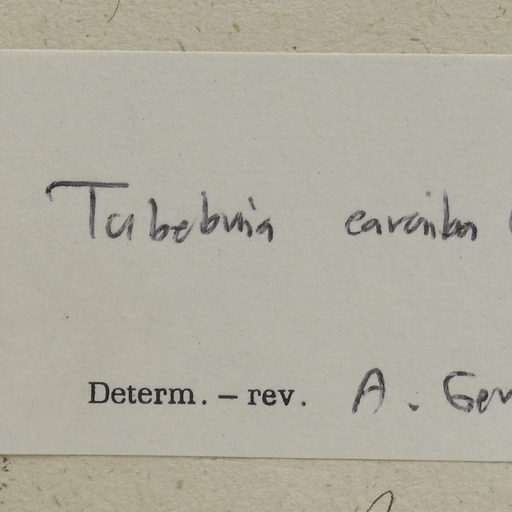 Tabebuia caraiba (
Determ. – rev. A. Gen